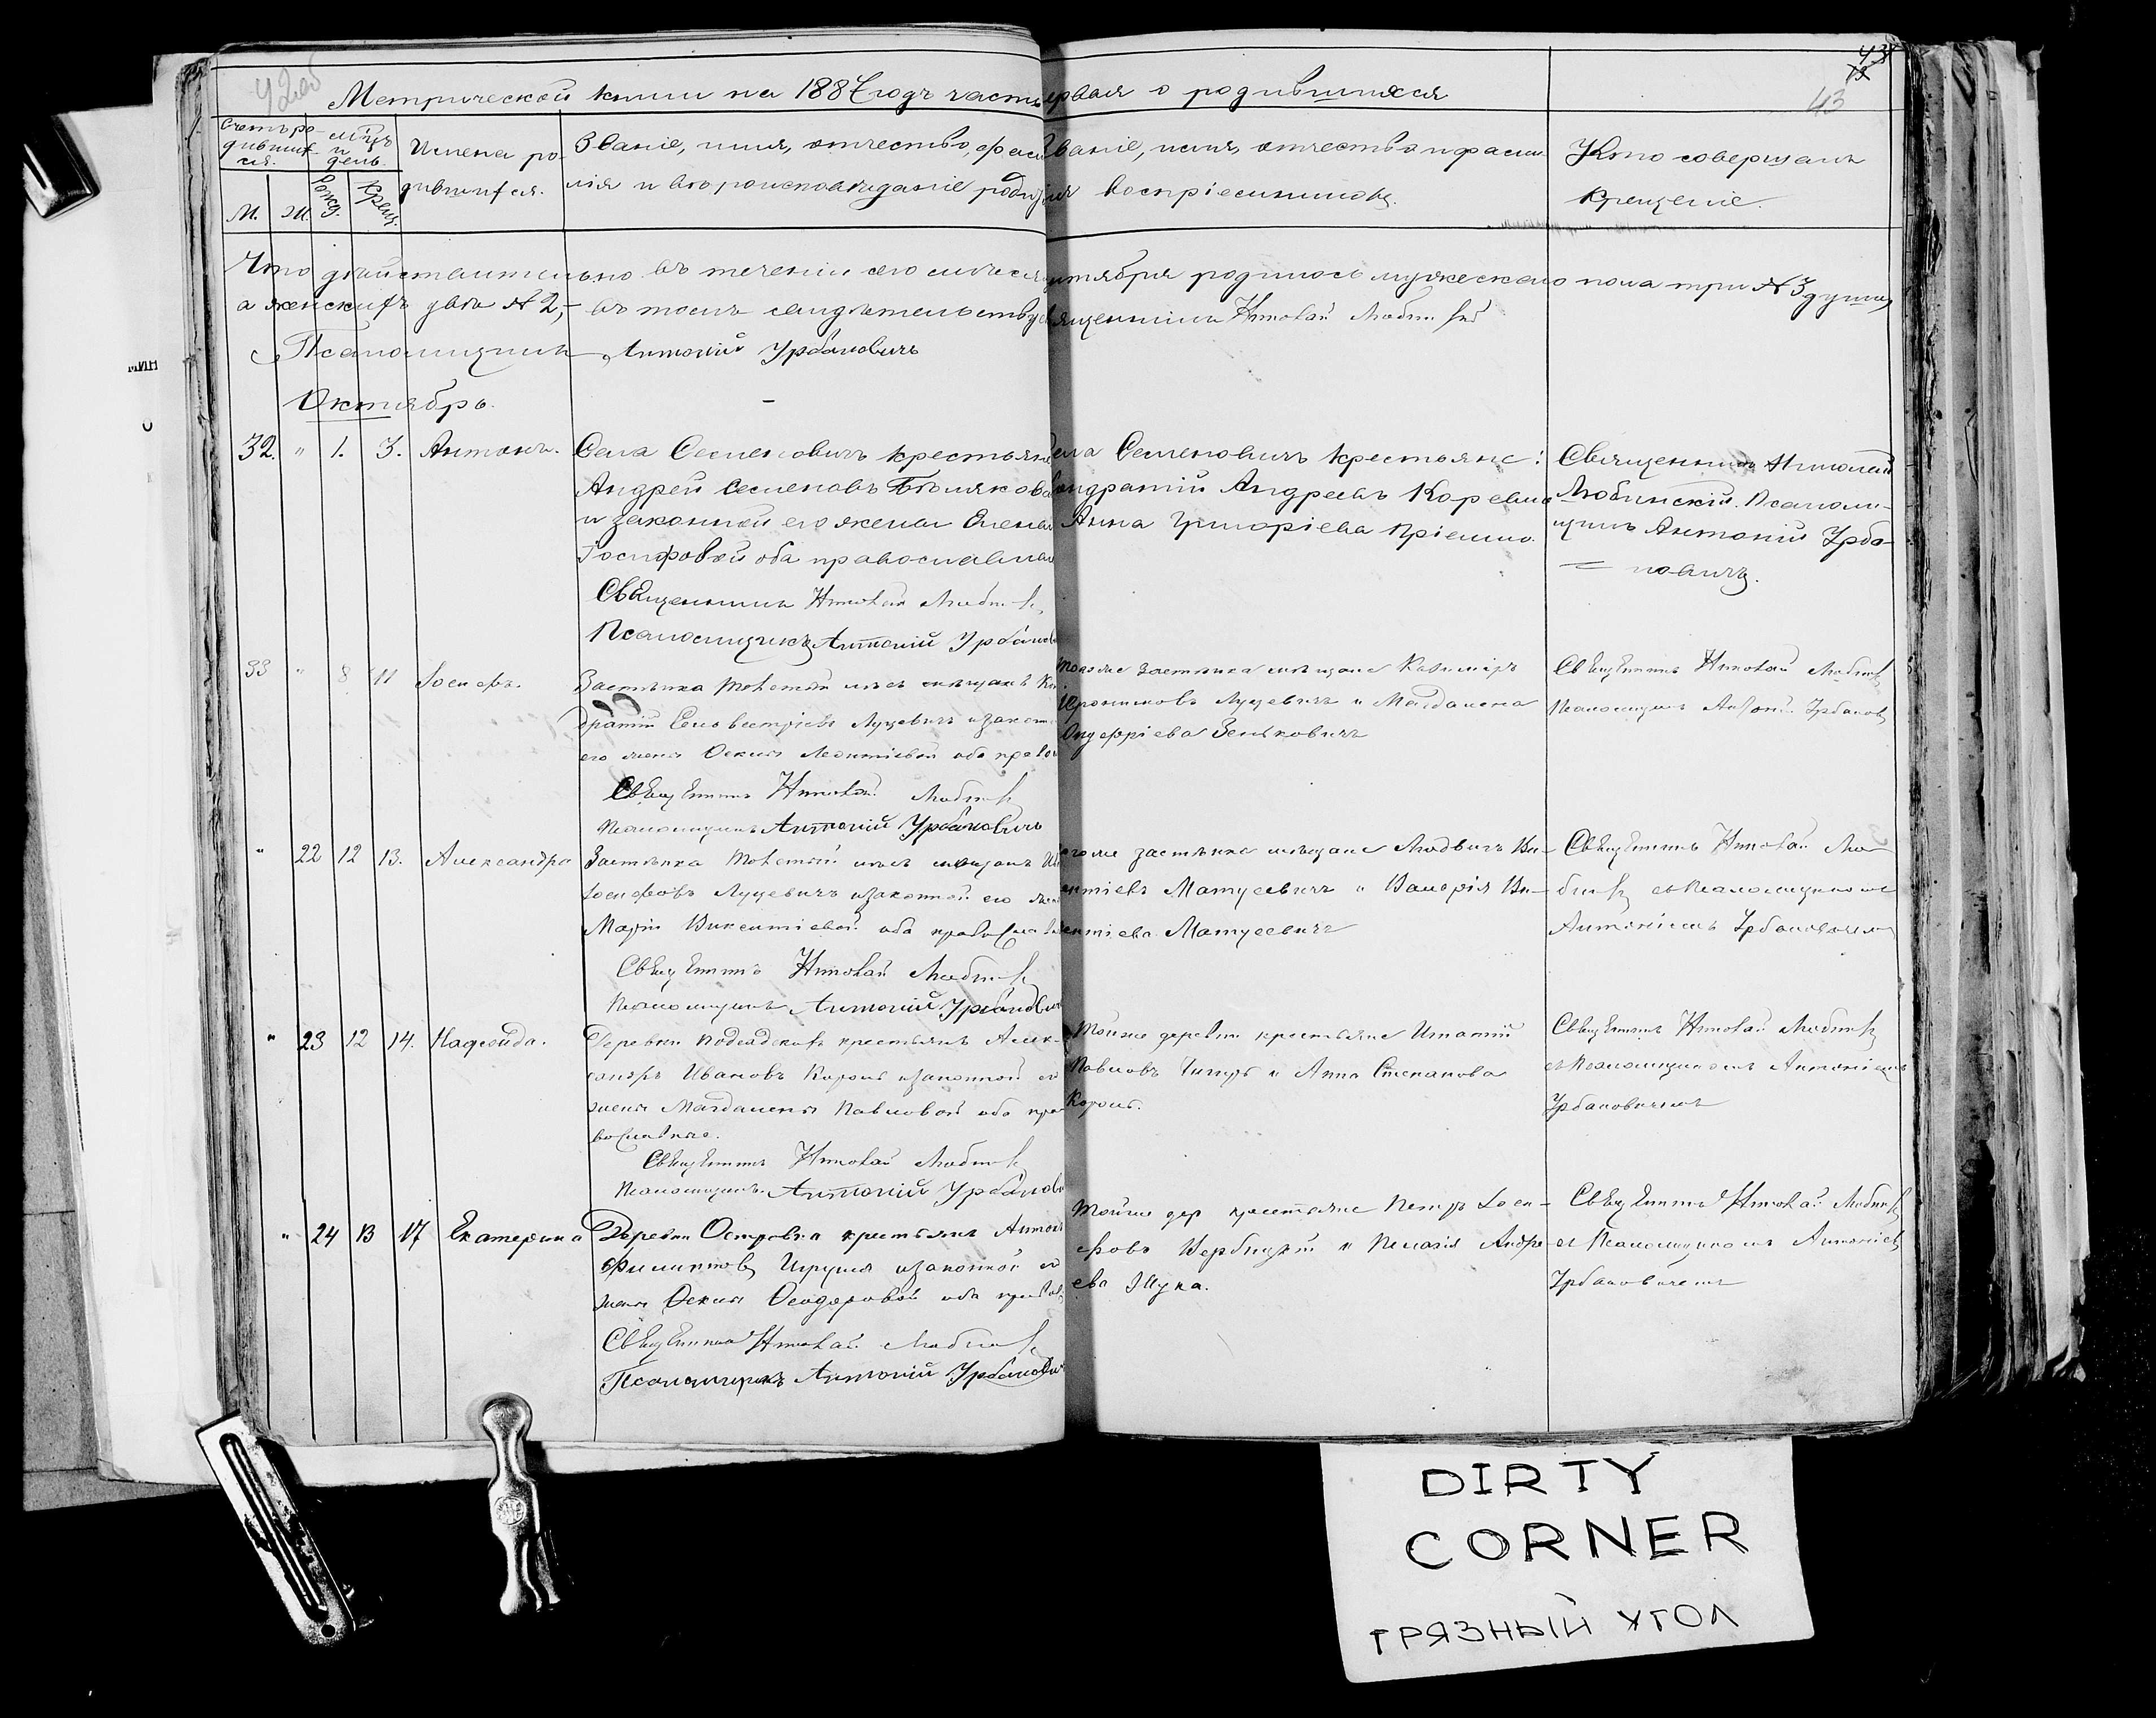 42об
43
43
Метрической книги на 1887 годъ часть первая о родившихся
Счетъ родившихся.
М-цъ и день.
Имена родившихся.
Званіе, имя, отчество, фамилія и вѣроисповѣданіе родит
Званіе, имя, отчество и фамилія воспріемниковъ.
Кто совершалъ крещеніе.
М.
Ж.
Рожд.
Крещ.
Что дѣйствительно въ теченіи сего мѣсяца сентября родилось мужескаго пола три №3 души,
а женскихъ двѣ №2, въ томъ свидѣтельствуемъ священникъ Николай
Псаломщикъ Антоній Урбановичъ
Октябрь.
32. " 1. 3. Антонъ.
Села Семеновичъ крестьяне
Андрей Семеновъ
и законной его жена Елена
Іосифовой оба православные
Священникъ Николай
Псаломщикъ Антоній Урбанов
Села Семеновичъ крестьяне:
Кондратій Андреевъ
Анна Григоріева
Священникъ Николай
Любинскій. Псалом-
щикъ Антоній Урба-
новичъ.
33 " 8 11 Іосифъ.
Застѣнка мѣщанъ Кон
дратій Сильвестріевъ Луцевичъ и законной
его жены Оекии Леонтіевой оба право
Священникъ Николай
Псаломщикъ Антоній Урбановичъ
Того же застѣнка мѣщане Казиміръ
Луцевичъ и Магдалена
Онуфріева Зеньковичъ
Священникъ Николай
Псаломщикъ Антоній Урбанов
" 22 12 13. Александра
Застѣнка мѣщанъ
Іосифовъ Луцевичъ и законной его жены
Маріи Викентіевой оба православн
Священникъ Николай
Псаломщикъ Антоній Урбанович
того же застѣнка мѣщане Людвигъ Ви-
кентіевъ Матусевичъ и Валерія Ви-
кентіева Матусевичъ
Священникъ Николай Лю
съ Псаломщикомъ
Антоніемъ Урбановичемъ
" 23 12 14. Надежда.
Деревни крестьянъ Алек-
сандръ Ивановъ Король и законной его
жены Магдалены Павловой оба пра
вославные.
Священникъ Николай
Псаломщикъ Антоній Урбанов
Тойже деревни крестьяне Игнатій
Павловъ и Анна Степанова
Король.
Священникъ Николай
съ Псаломщикомъ Антоніемъ
Урбановичемъ
" 24 13 17 Екатерина
Деревни Островка крестьянъ Антонъ
Филиповъ и законной его
жены Оекии Ѳеодоровой оба правос
Священникъ Николай
Псаломщикъ Антоній Урбанови
Тойже дер крестьяне Петръ Іоси-
фовъ Вербицкій и Пелагія Андре-
ева Щука.
Священникъ Николай
съ Псаломщикомъ Антоніемъ
Урбановичемъ
DIRTY
CORNER
ГРЯЗНЫЙ УГОЛ